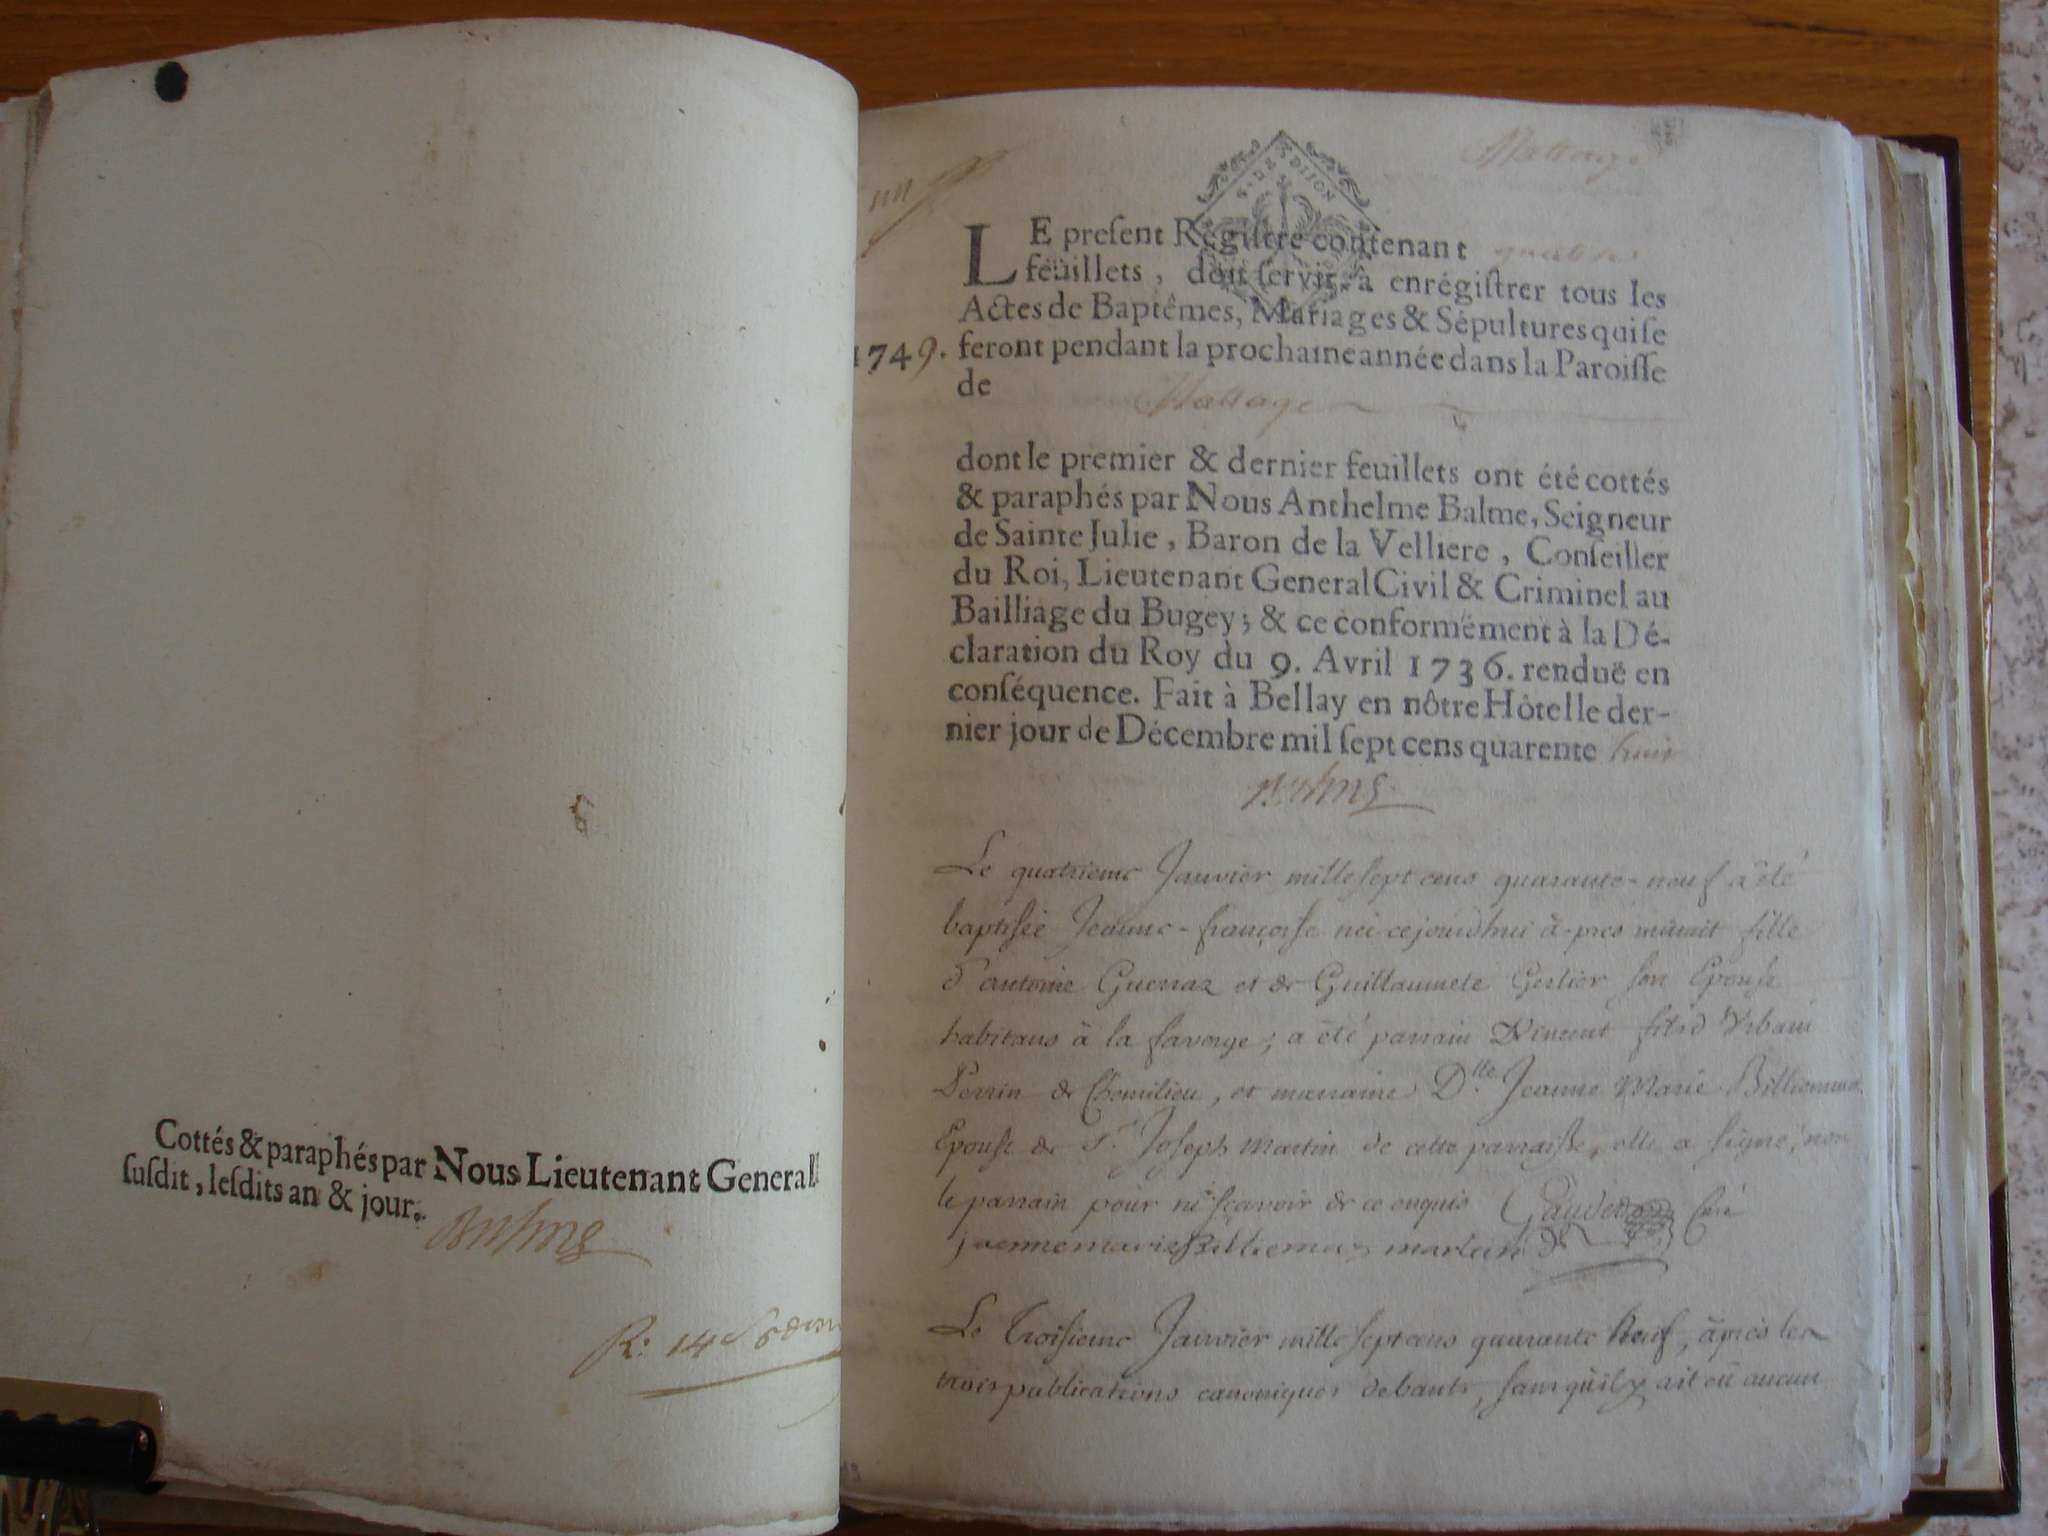 Cottés & paraphés par Nous Lieutenant General
ſuſdit, leſdits an & jour.
R: 14
G. DE DIJON
LE preſent Regiſtre contenant quatre
feüillets, doit ſervir à enrégiſtrer tous les
Actes de Baptêmes, Mariages & Sépultures qui ſe
1749. feront pendant la prochaine année dans la Paroiſſe
de
dont le premier & dernier feuillets ont été cottés
& paraphés par Nous Anthelme Balme, Seigneur
de Sainte Julie, Baron de la Velliere, Conſeiller
du Roi, Lieutenant General Civil & Criminel au
Bailliage du Bugey; & ce conformëment à la Dé-
claration du Roy du 9. Avril 1736. renduë en
conſéquence. Fait à Bellay en nôtre Hôtel le der-
nier jour de Décembre mil ſept cens quarente huit
Le quatrieme Janvier mille sept cens quarante-neuf à été
baptisée Jeanne-françoise née cejourdhui à-pres minuit fille
d'antoine Guerraz et de Guillaumete Gerlier son Epouse
habitans à la faverge; a été parrain Vincent fils d'Urbain
Perrin de Chemilieu, et marraine Dlle Jeanne Marie Billiemaz
Epouse de Sr Joseph Martin de cette parroisse, elle a signé, non
le parrain pour ne sçavoir de ce enquis Curé
jeanne marie Billiemaz martin
Le Troisieme Janvier mille sept cens quarante Neuf, àprès les
trois publications canoniques de bants, sans qu'il y ait eû aucun